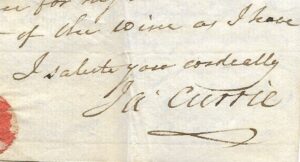 of the wine as I have
I salute you cordially
Ja Currie